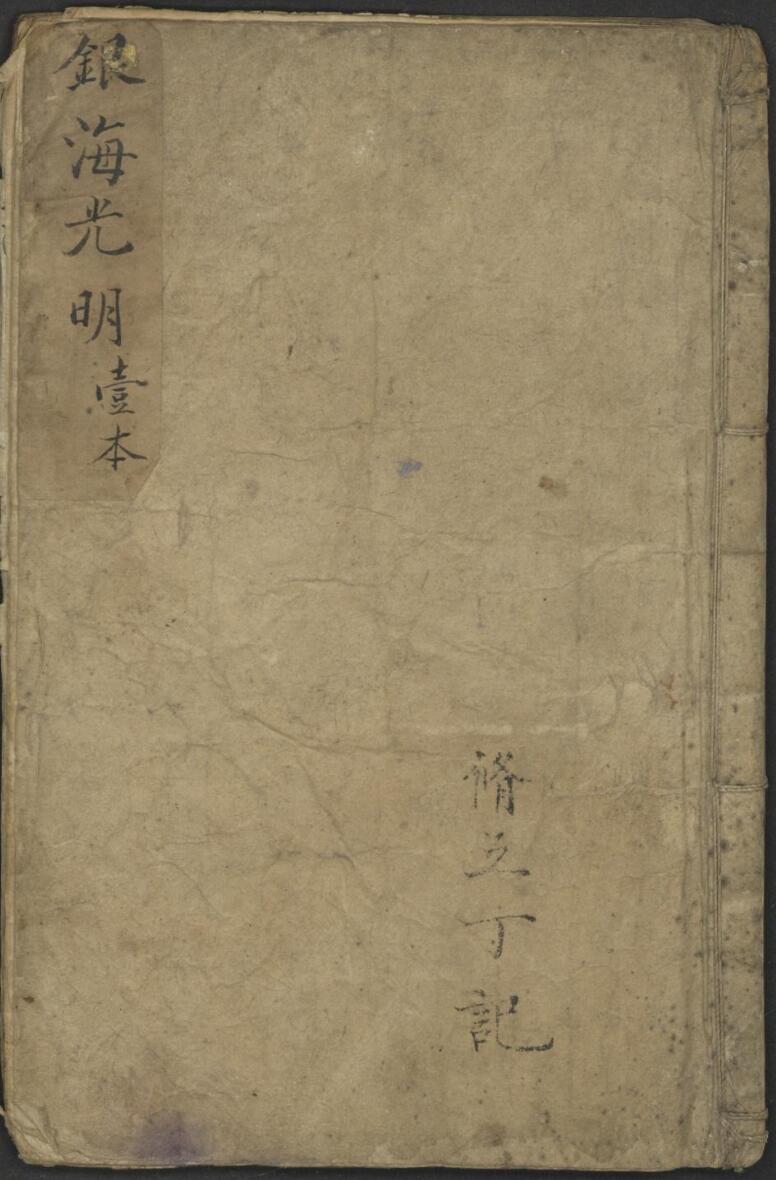 銀海光明壹本
脩立丁記